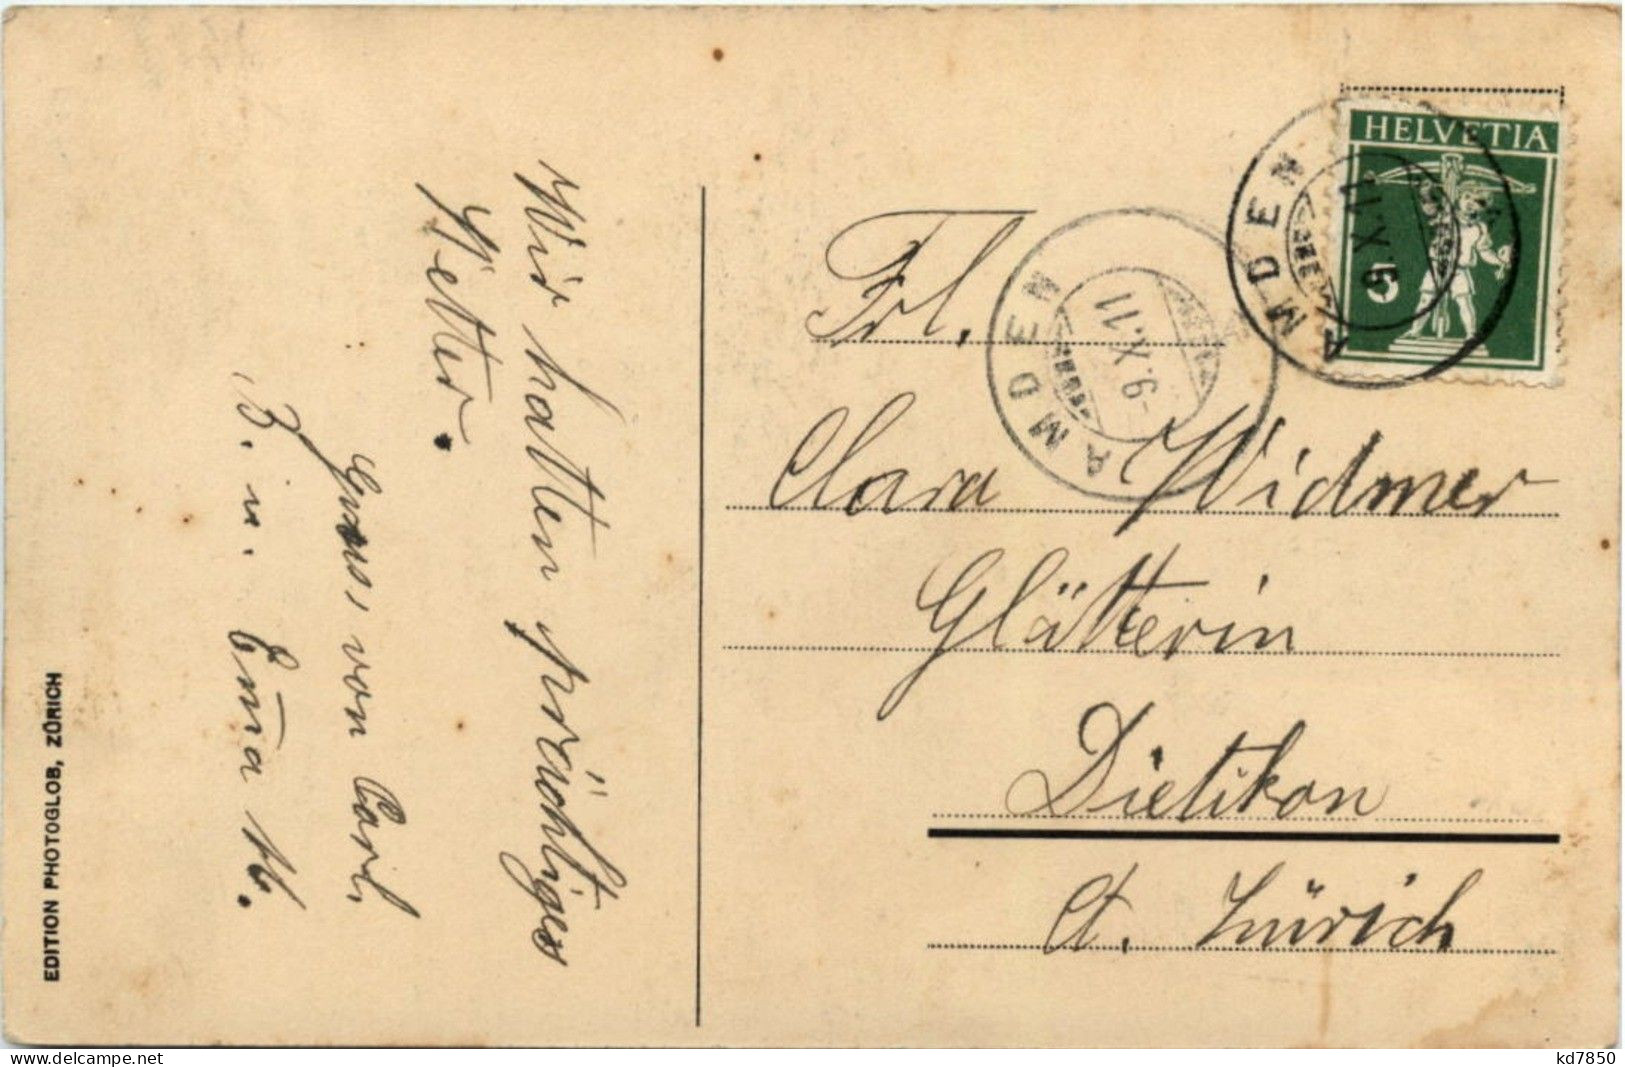 Wir hatten prächtiges
Wetter.
Gruss von Carl,
B. u. Em̄a W.
EDITION PHOTOGLOB, ZÜRICH
HELVETIA
5
AMDEN
9.X.11
AMDEN
-9.X.11
Frl.
Clara Widmer
Glätterin
Dietikon
Ct. Zürich
www.delcampe.net
kd7850